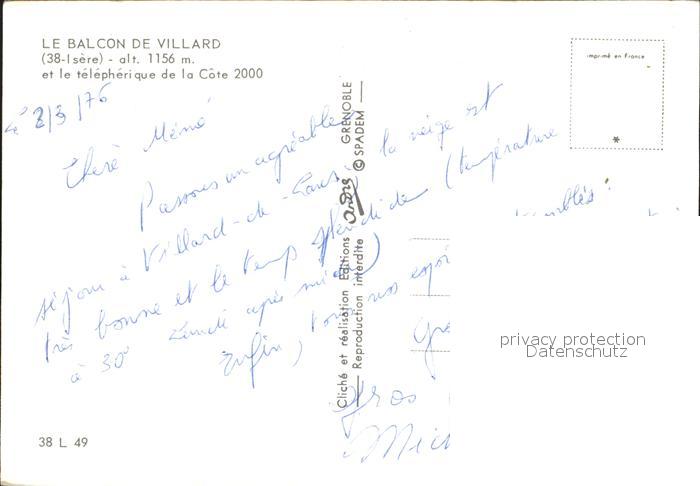 LE BALCON DE VILLARD
(38-Isère) - alt. 1156 m.
et le téléphérique de la Côte 2000
imprimé en France
*
le 2/3/76
Chère Mémé
Passons un agréable
séjour à Villard-de-Lans, la neige est
très bonne et le temps splendide (température
à 30° Lundi après midi)
Enfin, tous nos espoi
comblés.
Gro
Gros
Mich
Cliché et réalisation Editions André GRENOBLE
Reproduction interdite © SPADEM
38 L 49
privacy protection
Datenschutz